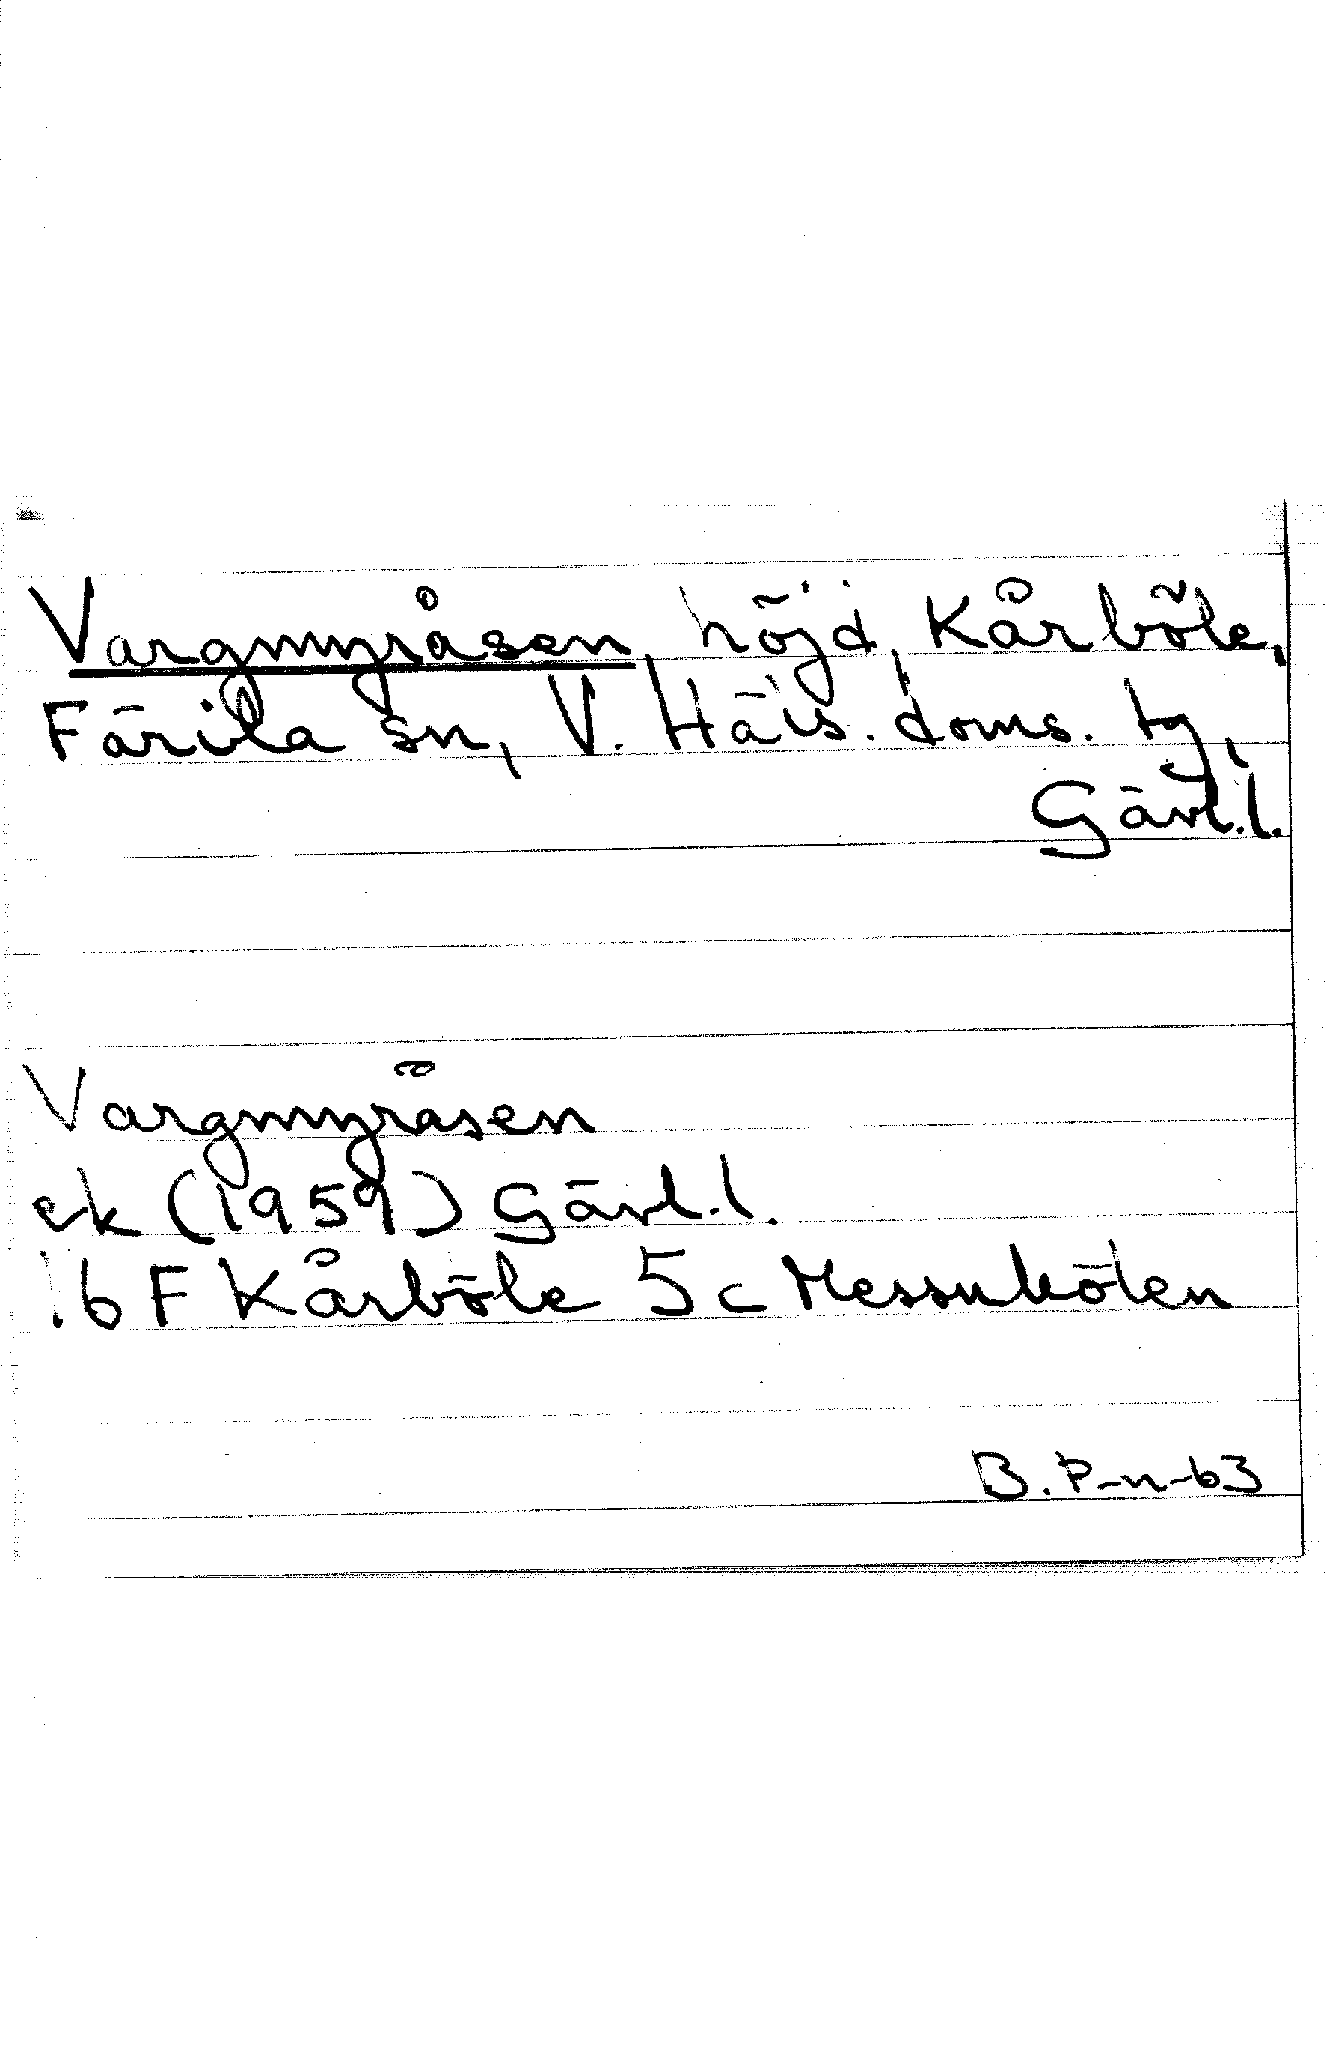 Vargmyråsen, höjd, Kårböle,
Färila sn, V. Häls. doms. tg,
Gävl.l.
Vargmyråsen
ek (1959) Gävl.l.
16 F Kårböle 5c Messubölen
B. P-n-63